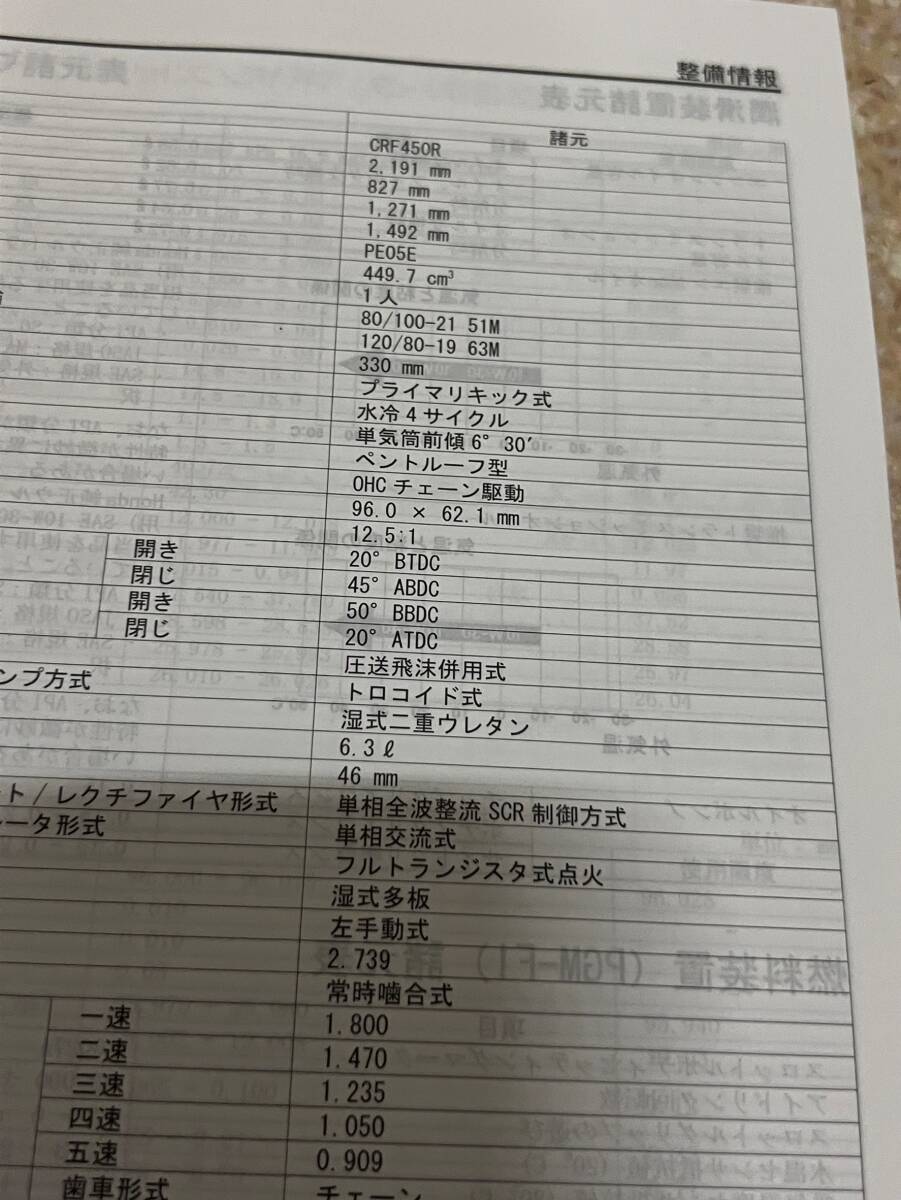 整備情報
諸元
CRF450R
2,191 mm
827 mm
1,271 mm
1,492 mm
PE05E
449.7 cm³
1人
80/100-21 51M
120/80-19 63M
330 mm
プライマリキック式
水冷4サイクル
単気筒前傾6° 30′
ペントルーフ型
OHC チェーン駆動
96.0 × 62.1 mm
12.5:1
開き 20° BTDC
閉じ 45° ABDC
開き 50° BBDC
閉じ 20° ATDC
圧送飛沫併用式
ンプ方式 トロコイド式
湿式二重ウレタン
6.3 ℓ
46 mm
ート/レクチファイヤ形式 単相全波整流 SCR 制御方式
レータ形式 単相交流式
フルトランジスタ式点火
湿式多板
左手動式
2.739
常時噛合式
一速 1.800
二速 1.470
三速 1.235
四速 1.050
五速 0.909
歯車形式 チェーン